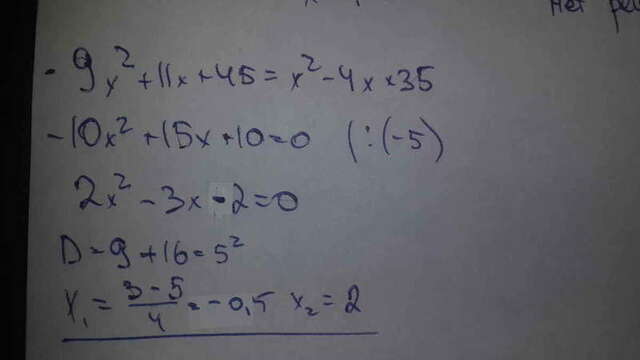 нет
-9x²+11x+45=x²-4x+35
-10x²+15x+10=0 (:(-5)
2x²-3x-2=0
D=9+16=5²
x₁=3-5/4=-0,5 x₂=2